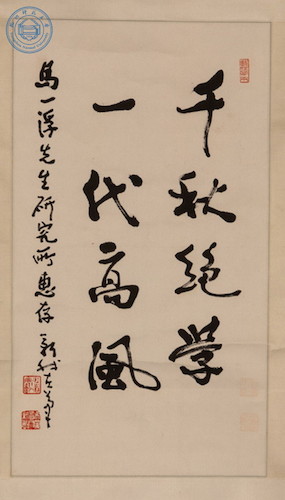 千秋绝学
一代高风
马一浮先生研究所惠存